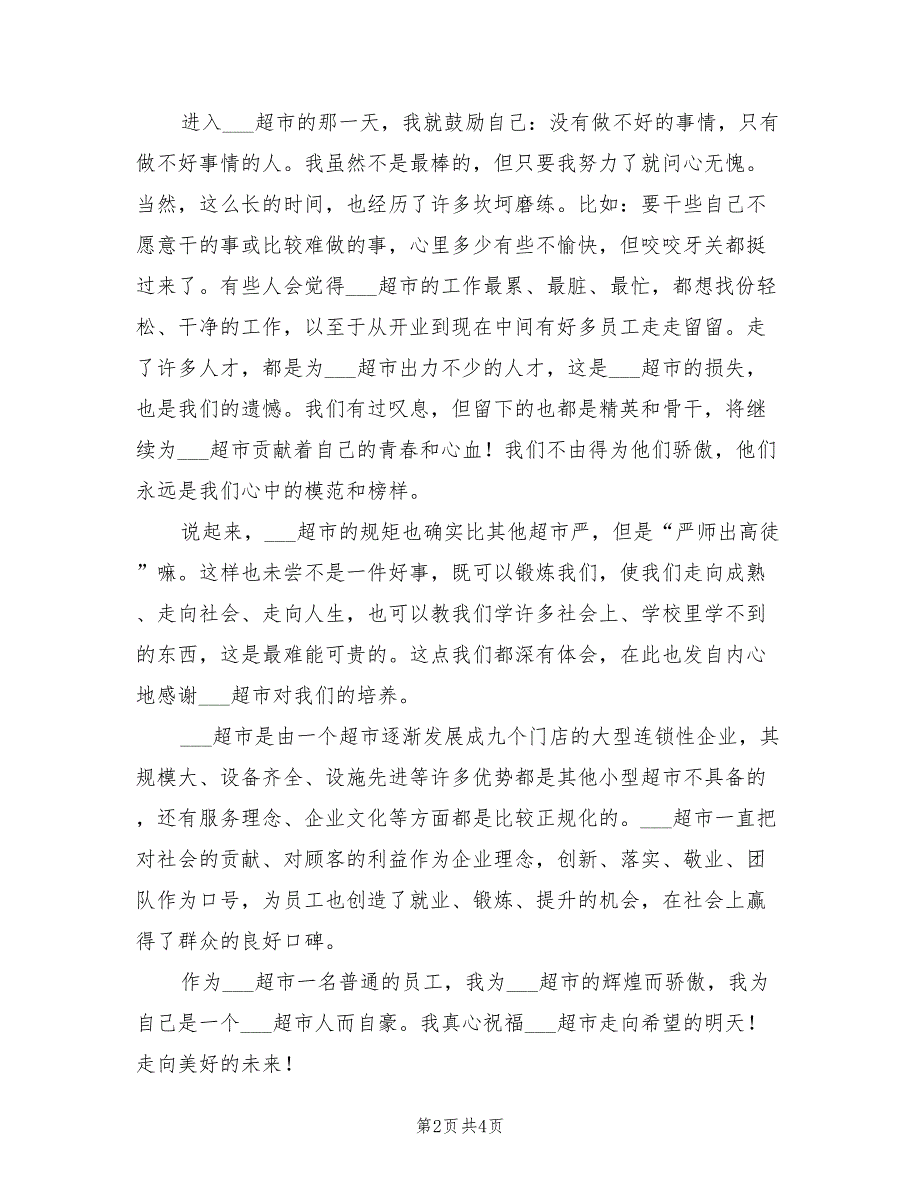 进入___超市的那一天，我就鼓励自己：没有做不好的事情，只有
做不好事情的人。我虽然不是最棒的，但只要我努力了就问心无愧。
当然，这么长的时间，也经历了许多坎坷磨练。比如：要干些自己不
愿意干的事或比较难做的事，心里多少有些不愉快，但咬咬牙关都挺
过来了。有些人会觉得___超市的工作最累、最脏、最忙，都想找份轻
松、干净的工作，以至于从开业到现在中间有好多员工走走留留。走
了许多人才，都是为___超市出力不少的人才，这是___超市的损失，
也是我们的遗憾。我们有过叹息，但留下的也都是精英和骨干，将继
续为___超市贡献着自己的青春和心血！我们不由得为他们骄傲，他们
永远是我们心中的模范和榜样。
说起来，___超市的规矩也确实比其他超市严，但是“严师出高徒
”嘛。这样也未尝不是一件好事，既可以锻炼我们，使我们走向成熟
、走向社会、走向人生，也可以教我们学许多社会上、学校里学不到
的东西，这是最难能可贵的。这点我们都深有体会，在此也发自内心
地感谢___超市对我们的培养。
___超市是由一个超市逐渐发展成九个门店的大型连锁性企业，其
规模大、设备齐全、设施先进等许多优势都是其他小型超市不具备的
，还有服务理念、企业文化等方面都是比较正规化的。___超市一直把
对社会的贡献、对顾客的利益作为企业理念，创新、落实、敬业、团
队作为口号，为员工也创造了就业、锻炼、提升的机会，在社会上赢
得了群众的良好口碑。
作为___超市一名普通的员工，我为___超市的辉煌而骄傲，我为
自己是一个___超市人而自豪。我真心祝福___超市走向希望的明天！
走向美好的未来！
第2页共4页